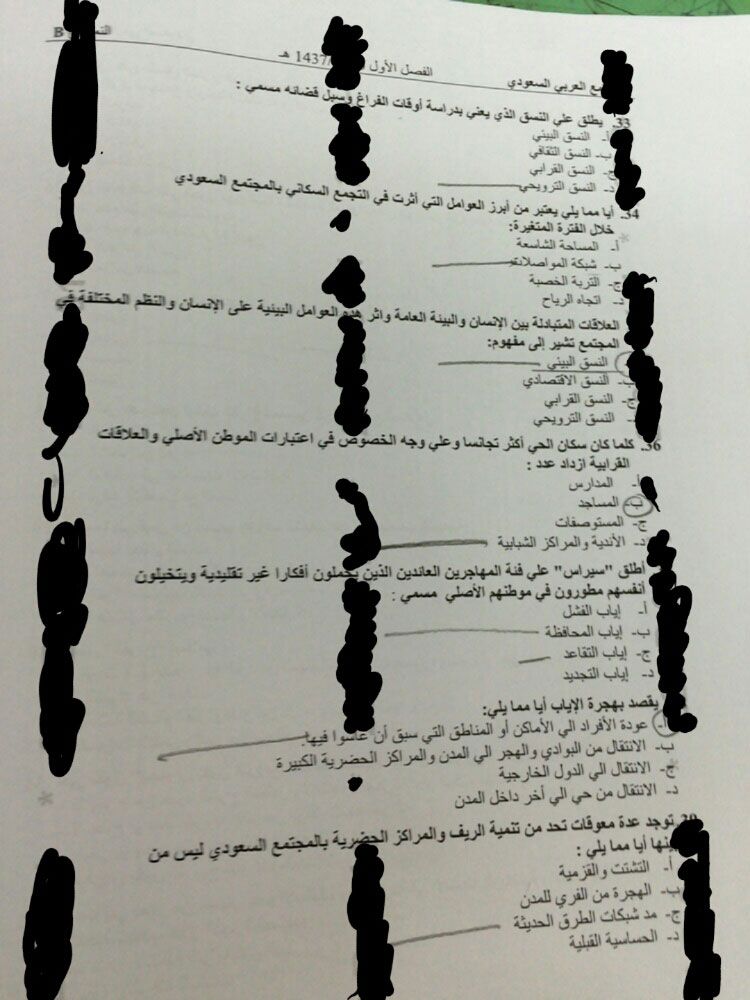 النم B
الفصل الأول 1437/ هـ
مع العربي السعودي
33. يطلق علي النسق الذي يعني بدراسة أوقات الفراغ وسبل قضائه مسمي :
أ- النسق البيئي
ب- النسق الثقافي
ج- النسق القرابي
د- النسق الترويحي
34. أيا مما يلي يعتبر من أبرز العوامل التي أثرت في التجمع السكاني بالمجتمع السعودي
خلال الفترة المتغيرة:
أ- المساحة الشاسعة
ب- شبكة المواصلات
ج- التربة الخصبة
د- اتجاه الرياح
العلاقات المتبادلة بين الإنسان والبيئة العامة واثر هذه العوامل البيئية على الإنسان والنظم المختلفة في
المجتمع تشير إلى مفهوم:
النسق البيئي
ب- النسق الاقتصادي
ج- النسق القرابي
النسق الترويحي
36. كلما كان سكان الحي أكثر تجانسا وعلي وجه الخصوص في اعتبارات الموطن الأصلي والعلاقات
القرابية ازداد عدد :
أ- المدارس
ب- المساجد
ج- المستوصفات
د- الأندية والمراكز الشبابية
أطلق "سيراس" علي فئة المهاجرين العائدين الذين يحملون أفكارا غير تقليدية ويتخيلون
أنفسهم مطورون في موطنهم الأصلي مسمي :
أ- إياب الفشل
ب- إياب المحافظة
ج- إياب التقاعد
د- إياب التجديد
يقصد بهجرة الإياب أيا مما يلي:
أ- عودة الأفراد الي الأماكن أو المناطق التي سبق أن عاشوا فيها.
ب- الانتقال من البوادي والهجر الي المدن والمراكز الحضرية الكبيرة
ج- الانتقال الي الدول الخارجية
د- الانتقال من حي الي أخر داخل المدن
39. توجد عدة معوقات تحد من تنمية الريف والمراكز الحضرية بالمجتمع السعودي ليس من
بينها أيا مما يلي :
أ- التشتت والقزمية
ب- الهجرة من القري للمدن
ج- مد شبكات الطرق الحديثة
د- الحساسية القبلية